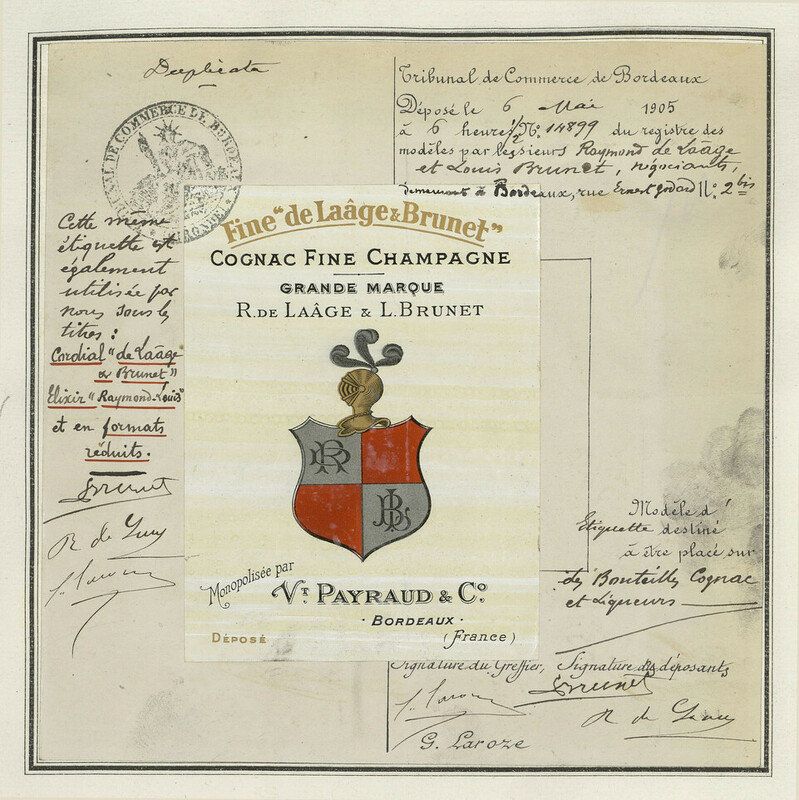 Duplicata
TRIBUNAL DE COMMERCE DE BORDEAUX
GIRONDE
Tribunal de Commerce de Bordeaux
Déposé le 6 Mai 1905
à 6 heures 1/2 N° 14899 du registre des
modèles par les sieurs Raymond de Laâge
et Louis Brunet, négociants,
demeurant à Bordeaux, rue Ernest Godard N° 2 bis
Cette même
étiquette est
également
utilisée par
nous sous les
titres :
Cordial "de Laâge
& Brunet"
Elixir "Raymond-Louis"
et en formats
réduits.
Brunet
R de Laage
Fine "de Laâge & Brunet"
COGNAC FINE CHAMPAGNE
GRANDE MARQUE
R. DE LAÂGE & L. BRUNET
Monopolisée par
VT. PAYRAUD & CO.
· BORDEAUX ·
(France)
DÉPOSÉ
Modèle d'
Etiquette destiné
à être placé sur
des Bouteilles Cognac
et Liqueurs
Signature du Greffier, Signature des déposants
Brunet
R de Laage
G. Laroze